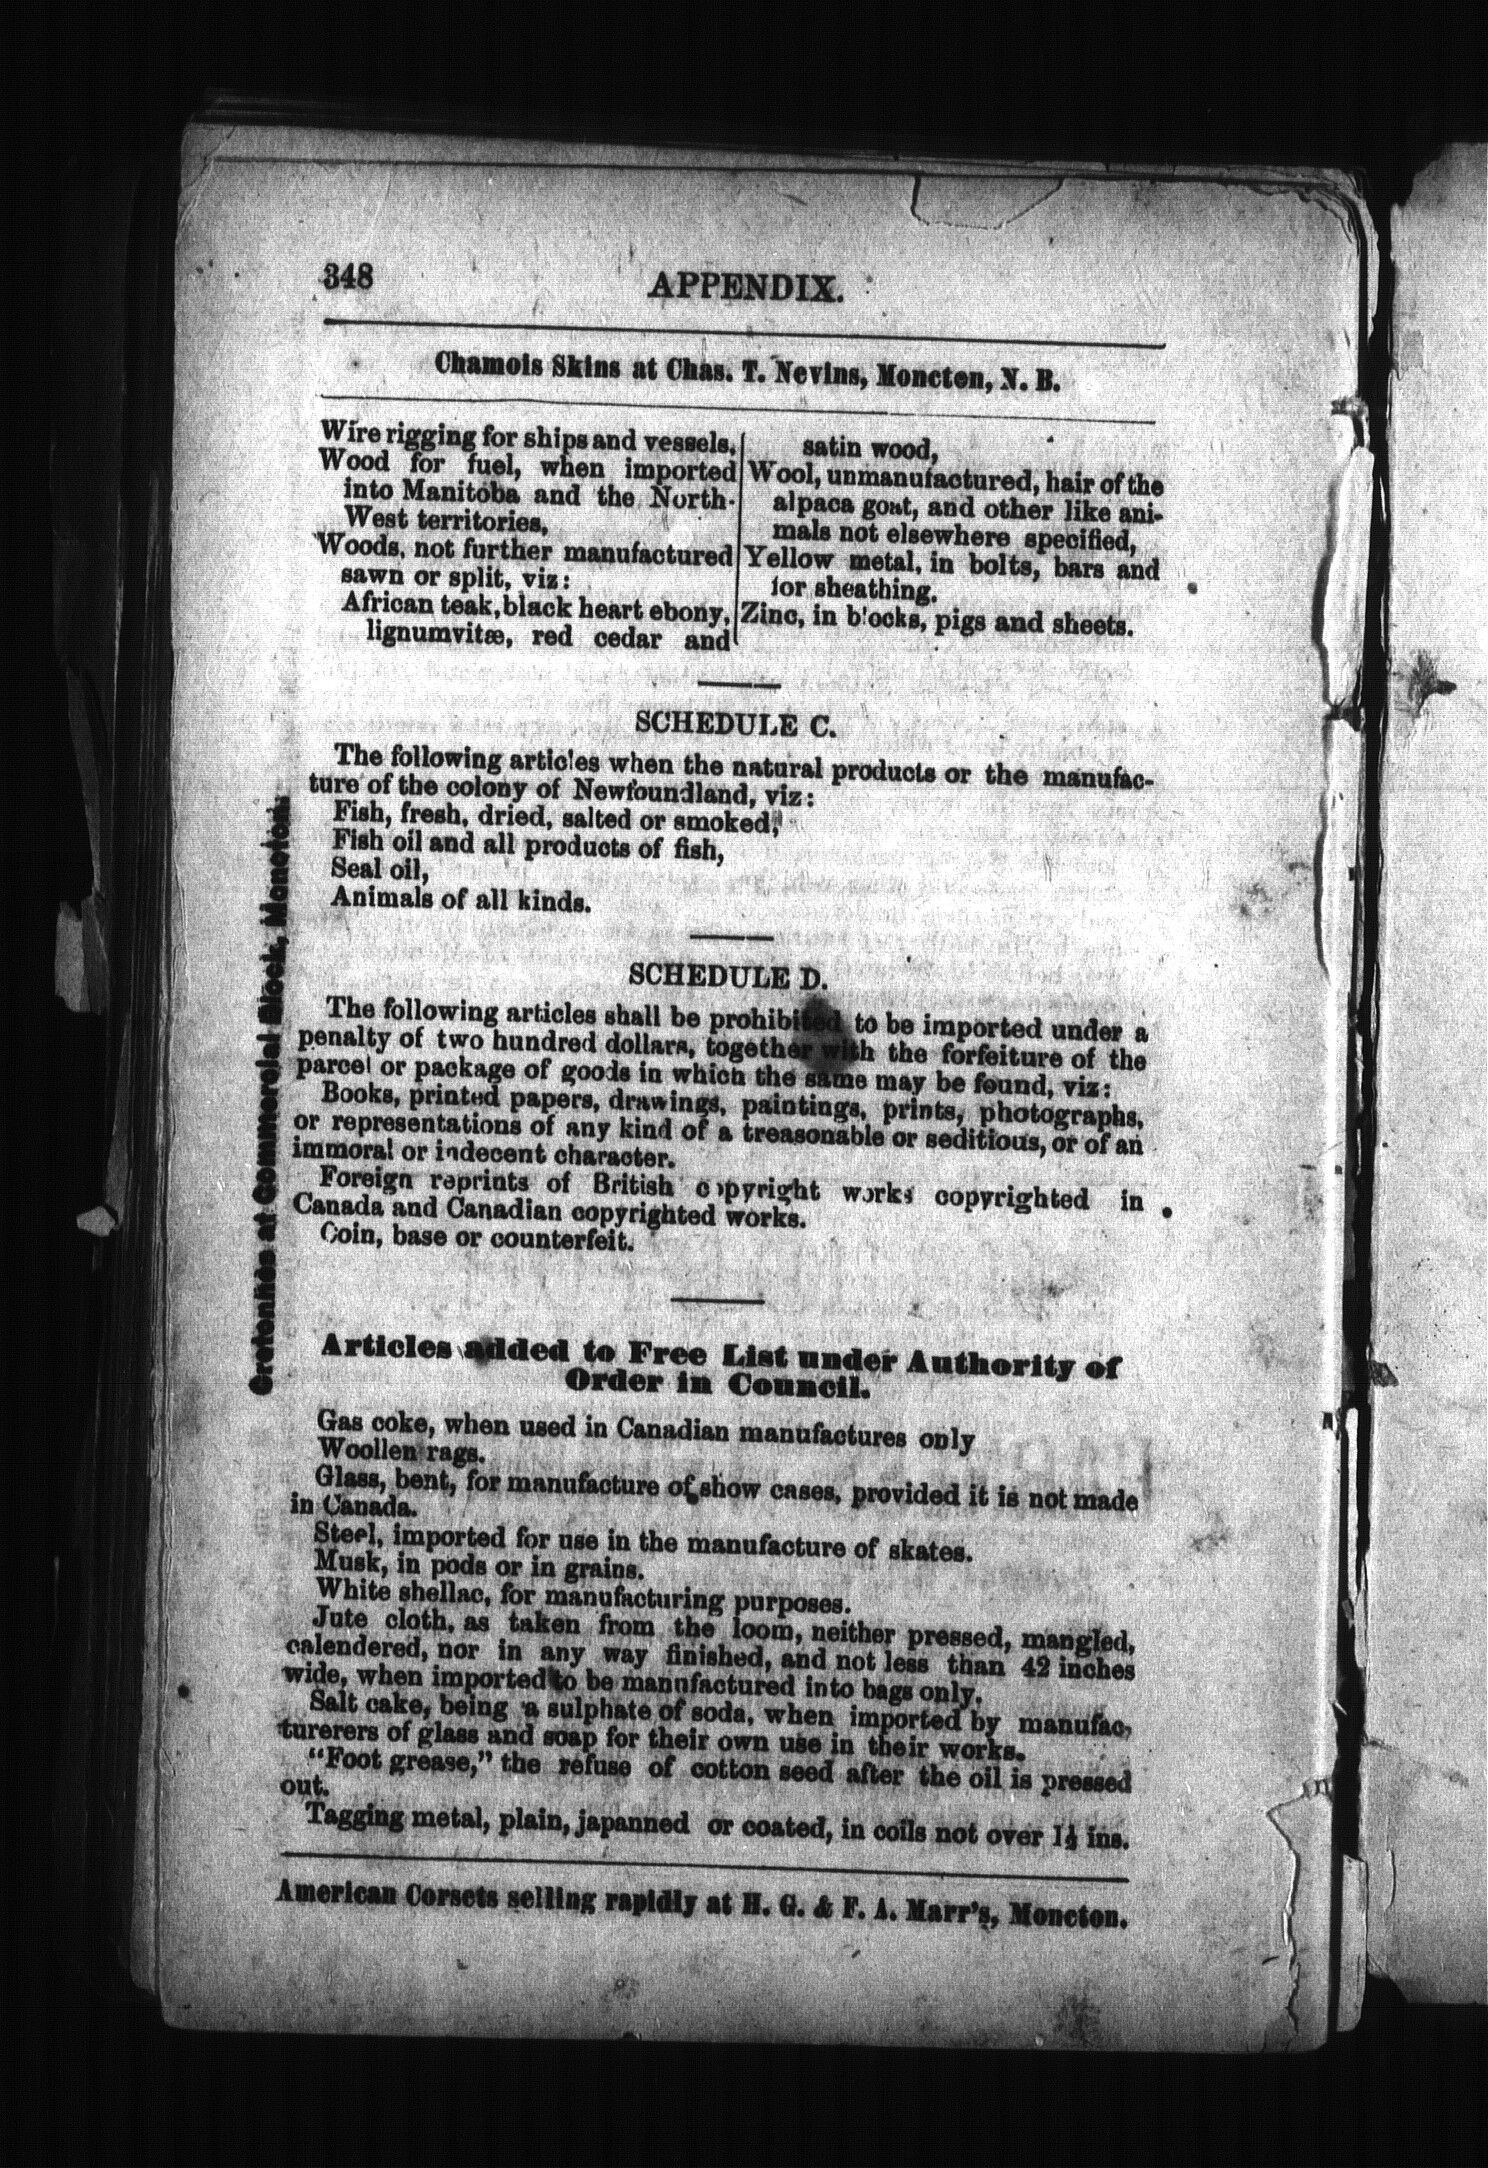 348
APPENDIX.
Chamois Skins at Chas. T. Nevins, Moncton, N. B.
Wire rigging for ships and vessels,
Wood for fuel, when imported
into Manitoba and the North-
West territories,
Woods, not further manufactured
sawn or split, viz:
African teak, black heart ebony,
lignumvitæ, red cedar and
satin wood,
Wool, unmanufactured, hair of the
alpaca goat, and other like ani-
mals not elsewhere specified,
Yellow metal, in bolts, bars and
for sheathing.
Zinc, in blocks, pigs and sheets.
SCHEDULE C.
The following articles when the natural products or the manufac-
ture of the colony of Newfoundland, viz:
Fish, fresh, dried, salted or smoked,
Fish oil and all products of fish,
Seal oil,
Animals of all kinds.
SCHEDULE D.
The following articles shall be prohibited to be imported under a
penalty of two hundred dollars, together with the forfeiture of the
parcel or package of goods in which the same may be found, viz:
Books, printed papers, drawings, paintings, prints, photographs,
or representations of any kind of a treasonable or seditious, or of an
immoral or indecent character.
Foreign reprints of British copyright works copyrighted in
Canada and Canadian copyrighted works.
Coin, base or counterfeit.
Articles added to Free List under Authority of
Order in Council.
Gas coke, when used in Canadian manufactures only
Woollen rags.
Glass, bent, for manufacture of show cases, provided it is not made
in Canada.
Steel, imported for use in the manufacture of skates.
Musk, in pods or in grains.
White shellac, for manufacturing purposes.
Jute cloth, as taken from the loom, neither pressed, mangled,
calendered, nor in any way finished, and not less than 42 inches
wide, when imported to be manufactured into bags only.
Salt cake, being a sulphate of soda, when imported by manufac-
turerers of glass and soap for their own use in their works.
"Foot grease," the refuse of cotton seed after the oil is pressed
out.
Tagging metal, plain, japanned or coated, in coils not over 1½ ins.
American Corsets selling rapidly at H. G. & F. A. Marr's, Moncton.
Cretonnes at Commercial Block, Moncton.